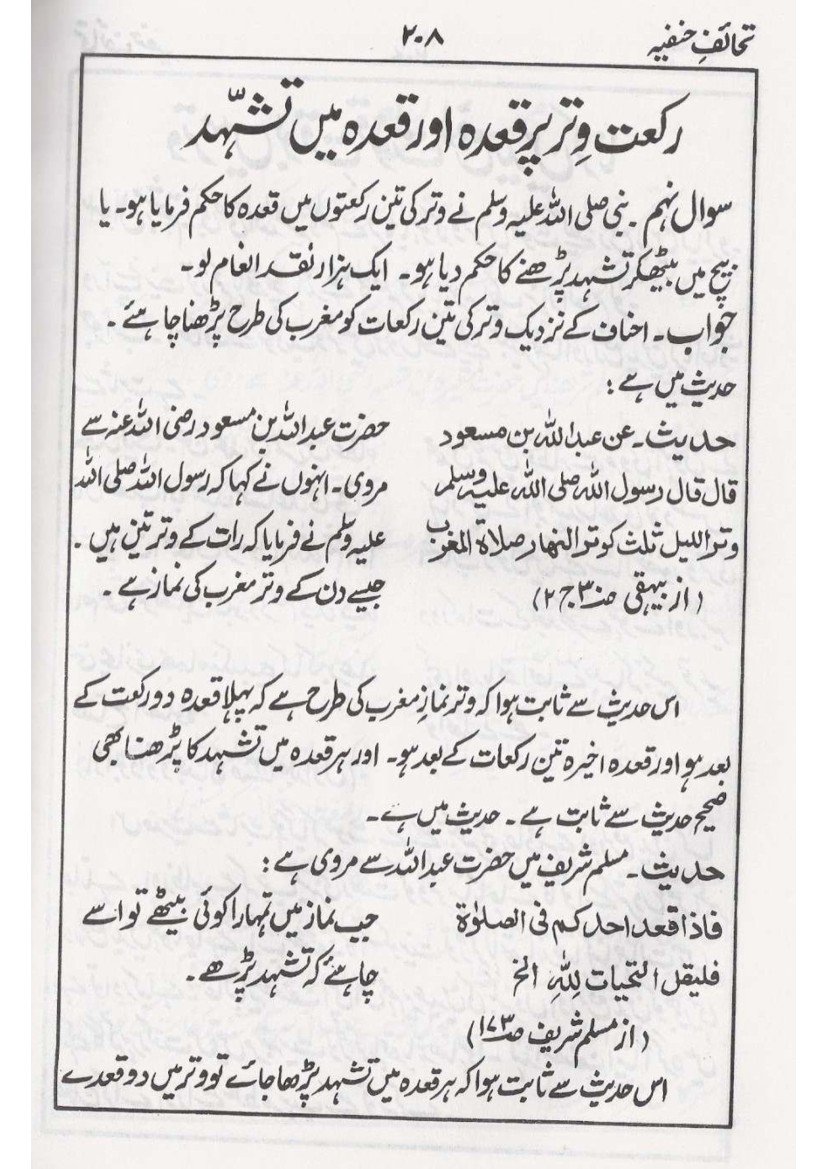 تحائفِ حنفیہ
۲۰۸
رکعت وِتر پر قعدہ اور قعدہ میں تشہّد
سوال نہم ۔ نبی صلی اللہ علیہ وسلم نے وتر کی تین رکعتوں میں قعدہ کا حکم فرمایا ہو۔ یا
بیچ میں بیٹھکر تشہد پڑھنے کا حکم دیا ہو۔ ایک ہزار نقد انعام لو۔
جواب۔ احناف کے نزدیک وتر کی تین رکعات کو مغرب کی طرح پڑھنا چاہئے ۔
حدیث میں ہے :
حدیث۔ عن عبد اللہ بن مسعود
قال قال رسول اللہ صلی اللہ علیہ وسلم
وتر اللیل ثلث کوتر النھار صلاۃ المغرب
(از بیہقی صـ۳۰ ج ۲)
حضرت عبد اللہ بن مسعود رضی اللہ عنہ سے
مروی۔ انہوں نے کہا کہ رسول اللہ صلی اللہ
علیہ وسلم نے فرمایا کہ رات کے وتر تین ہیں ۔
جیسے دن کے وتر مغرب کی نماز ہے ۔
اس حدیث سے ثابت ہوا کہ وتر نمازِ مغرب کی طرح ہے کہ پہلا قعدہ دو رکعت کے
بعد ہو اور قعدہ اخیرہ تین رکعات کے بعد ہو۔ اور ہر قعدہ میں تشہد کا پڑھنا بھی
صحیح حدیث سے ثابت ہے ۔ حدیث میں ہے ۔
حدیث ۔ مسلم شریف میں حضرت عبد اللہ سے مروی ہے :
فاذا قعد احدکم فی الصلوٰۃ
فلیقل التحیات لِلّٰہِ الخ
(از مسلم شریف صـ۱۷۳)
جب نماز میں تمہارا کوئی بیٹھے تو اسے
چاہئے کہ تشہد پڑھے ۔
اس حدیث سے ثابت ہوا کہ ہر قعدہ میں تشہد پڑھا جائے تو وتر میں دو قعدے